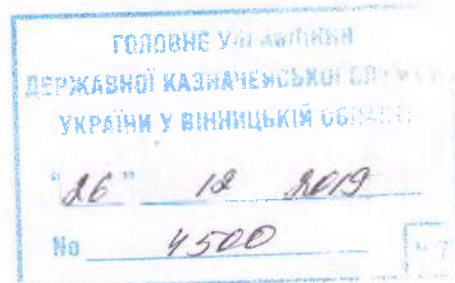 ГОЛОВНЕ УПРАВЛІННЯ
ДЕРЖАВНОЇ КАЗНАЧЕЙСЬКОЇ СЛУЖБИ
УКРАЇНИ У ВІННИЦЬКІЙ ОБЛАСТІ
"26" 12 2019
No 4500